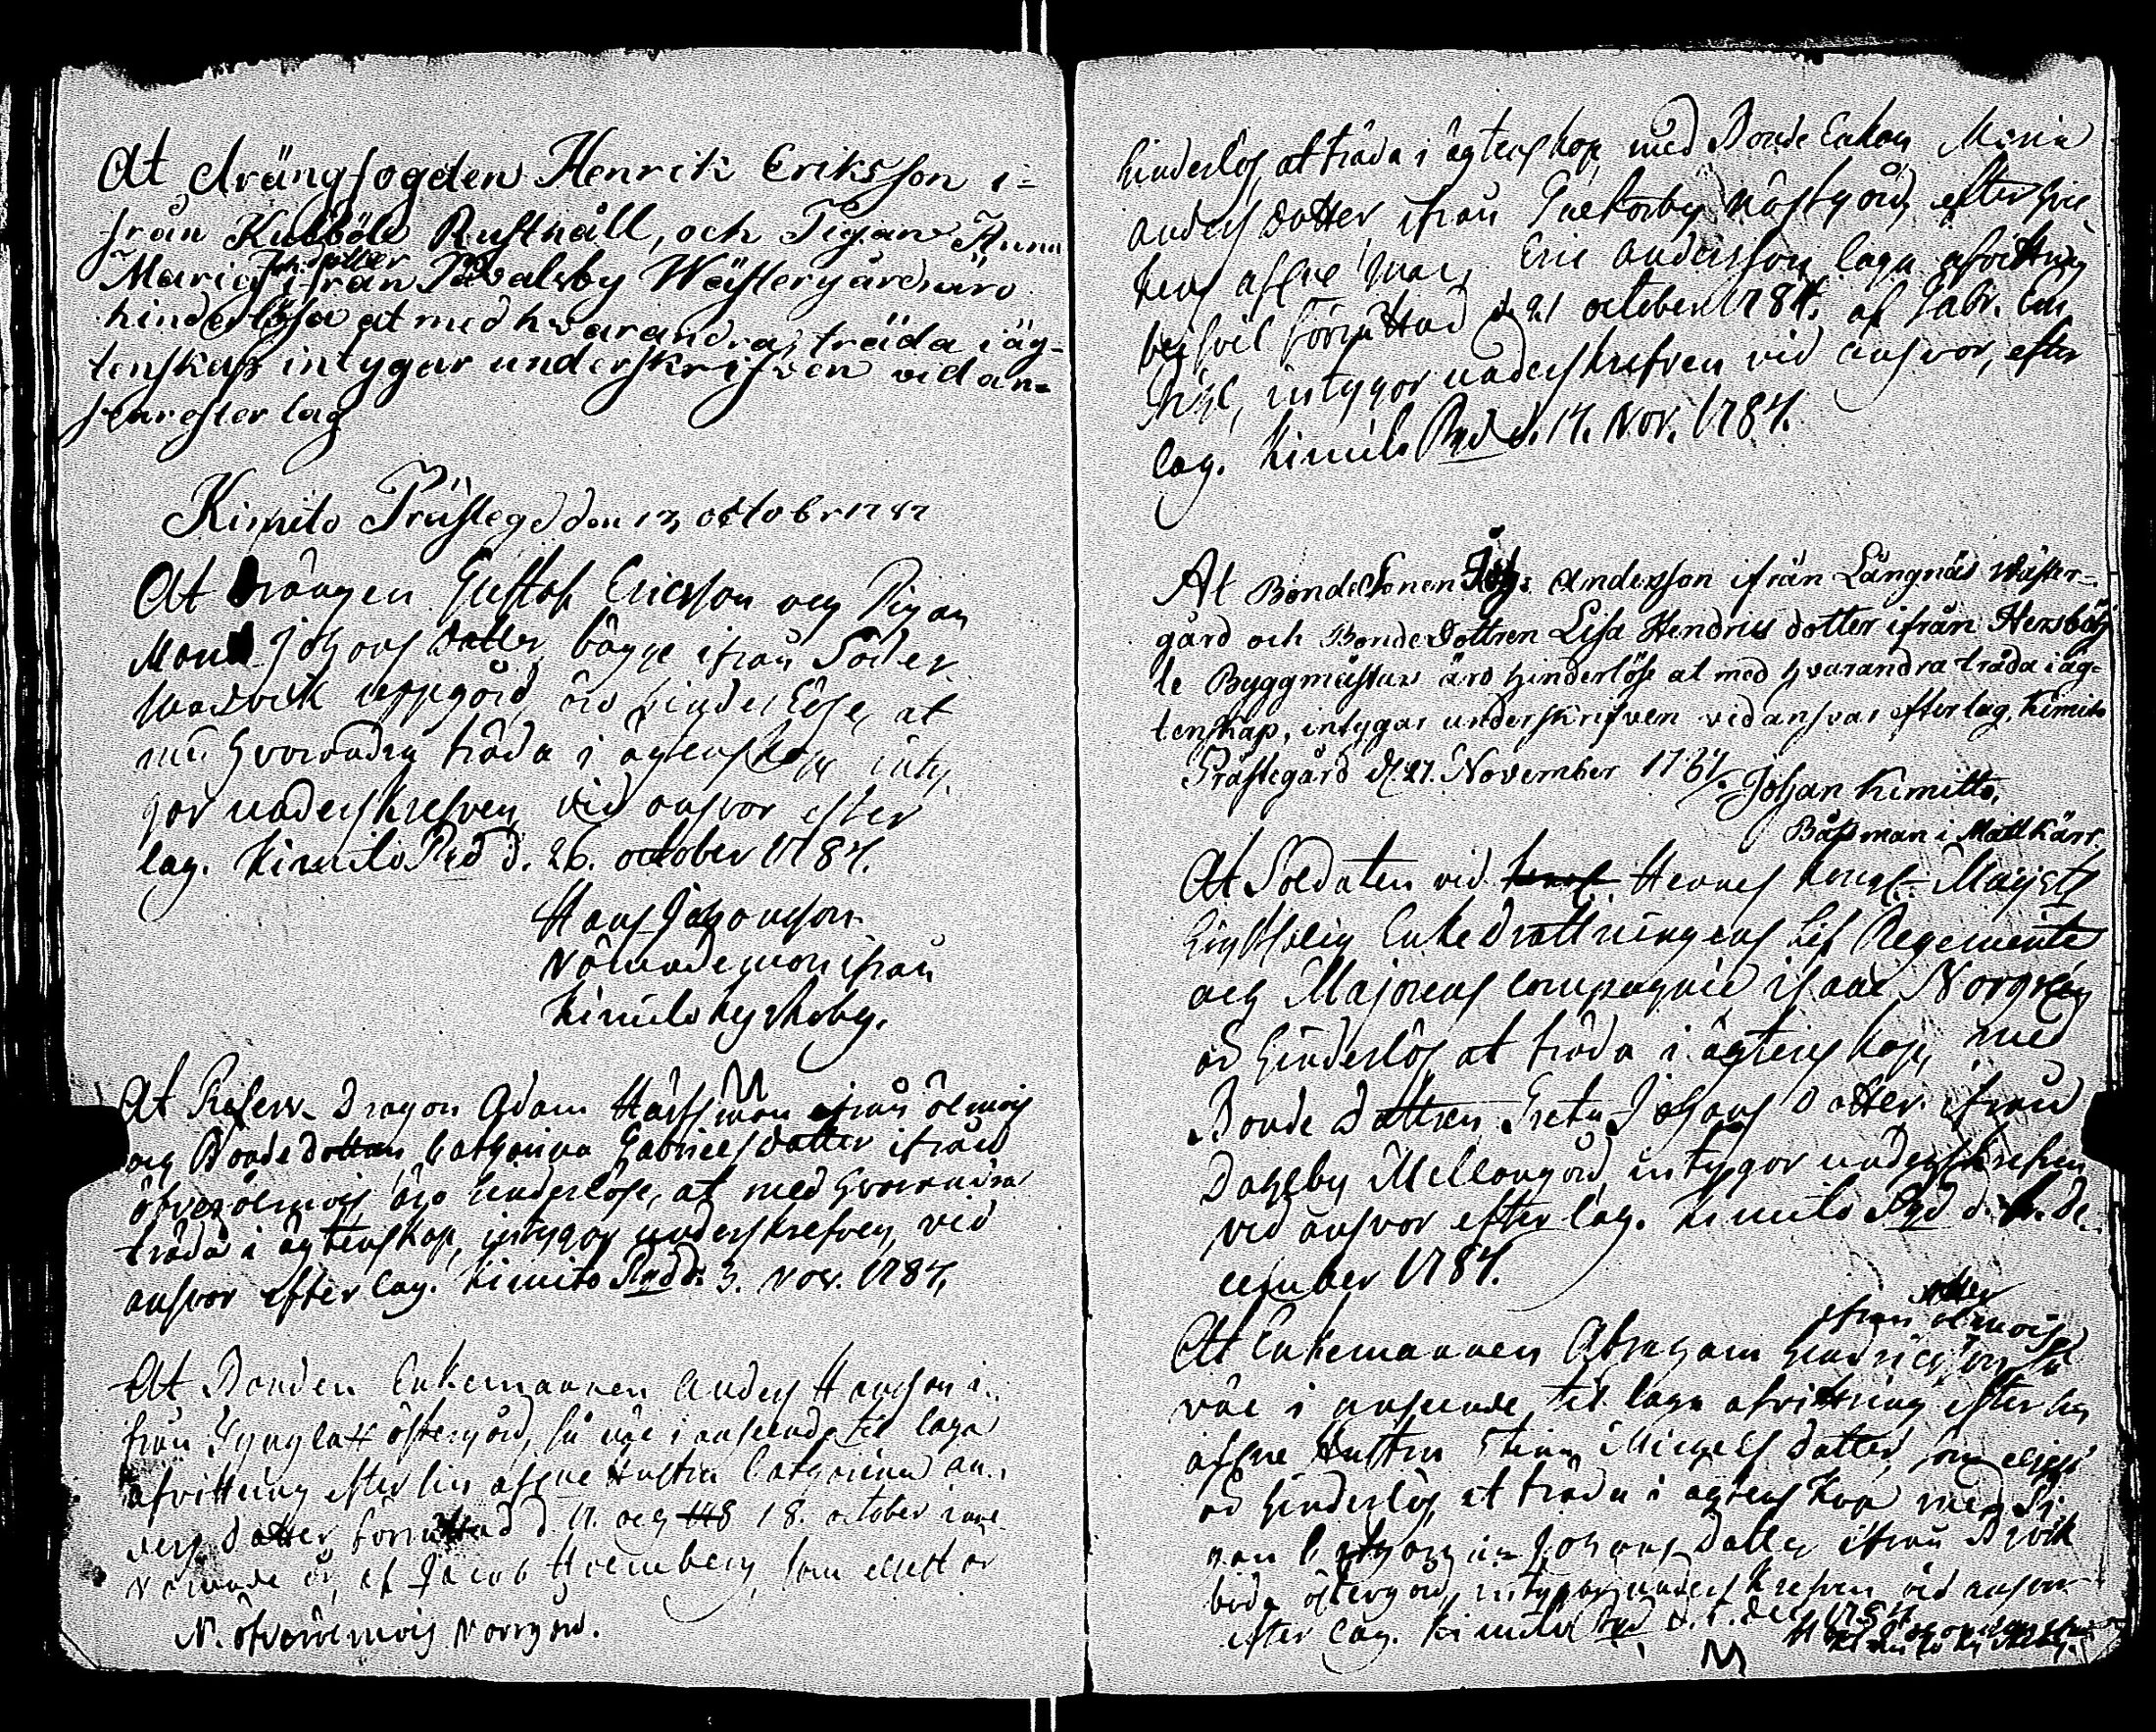 At drängfogden Henrik Eriksson i=
från Kulböle Rusthåll, och Pigan Anna
Joh. dotter
Maria ifrån Pävalsby Wästergård äro
hinderlösa at med hvarandra, träda i äg=
tenskap intygar underskrifven vid an=
svar efter lag
Kimito Prästegd den 13 octobr 1787
At drängen Gustaf Ericsson och Pigan
Johans dotter, bägge ifrån Söder
uppgård, äro hinderlöse, at
med hvarandra träda i ägtenskap inty
gar underskrefven, vid ansvar efter
lag. Kimito Pgd d. 26. october 1787.
Hans Johansson
Nämndeman ifrån
Kimito Kyrkoby.
M
At Reserv-Dragon Adam ifrån ölmois
och Bondedottren Catharina Gabriels dotter ifrån
öfverölmois äro hinderlöse, at med hvarandra
träda i ägtenskap, intygar underskrefven, vid
ansvar efter lag. Kimito Pgd d. 3. Nov. 1787.
At Bonden Enkemannen Anders Hansson i
från östergård, så väl i anseende til laga
afvittring efter sin aflne Hustru Catharina An
ders dotter, förrättad d. 17. och 18. october inne
varande år, af Jacob Holmberg, som eljest är
N. öfverölmois Norrgård.
hinderlös, at träda i ägtenskap, med Bonde Enkan Maria
Anders dotter, ifrån Nästgård, efter hvil
kens aflne man, Eric Andersson laga afvittring
förrättad d. 21 october 1787. af Gabr.
intygar underskrefven vid ansvar, efter
lag. Kimito Pgd d. 17. Nov. 1787.
At Bonde Sonen Joh: Andersson ifrån Långnäs Wäster-
gård och Bonde Dottren Lisa Hendrics dotter ifrån Hersböh
le Byggmästars äro hinderlöse at med hvarandra träda i äg=
tenskap, intygar underskrifven vid ansvar efter lag. Kimito
Prästegård d. 27. November 1787.
Johan Kimitto.
Båtsman i Mattkärr.
At Soldaten vid Hennes Kongl. Majsts
Enkedrottningens Lif Regemente
och Majorens compagnie Isaac Norgren
är hinderlös at träda i ägtenskap, med
Bonde Dottren Greta Johans dotter ifrån
Dahlby Mellangård, intygar underskrefven
vid ansvar efter lag. Kimito Pgd d. De-
cember 1787.
ifrån ölmois
At Enkemannen Abraham Hendricsson så
väl i anseende til laga afvittring efter sin
aflne Hustru Stina Michels dotter, som eljest
är hinderlös, at träda i ägtenskap med Pi
gan Catharina Johans dotter ifrån
östergård, intygar underskrefven vid ansvar
efter lag. Kimito Pgd d. Dec. 1787.
M